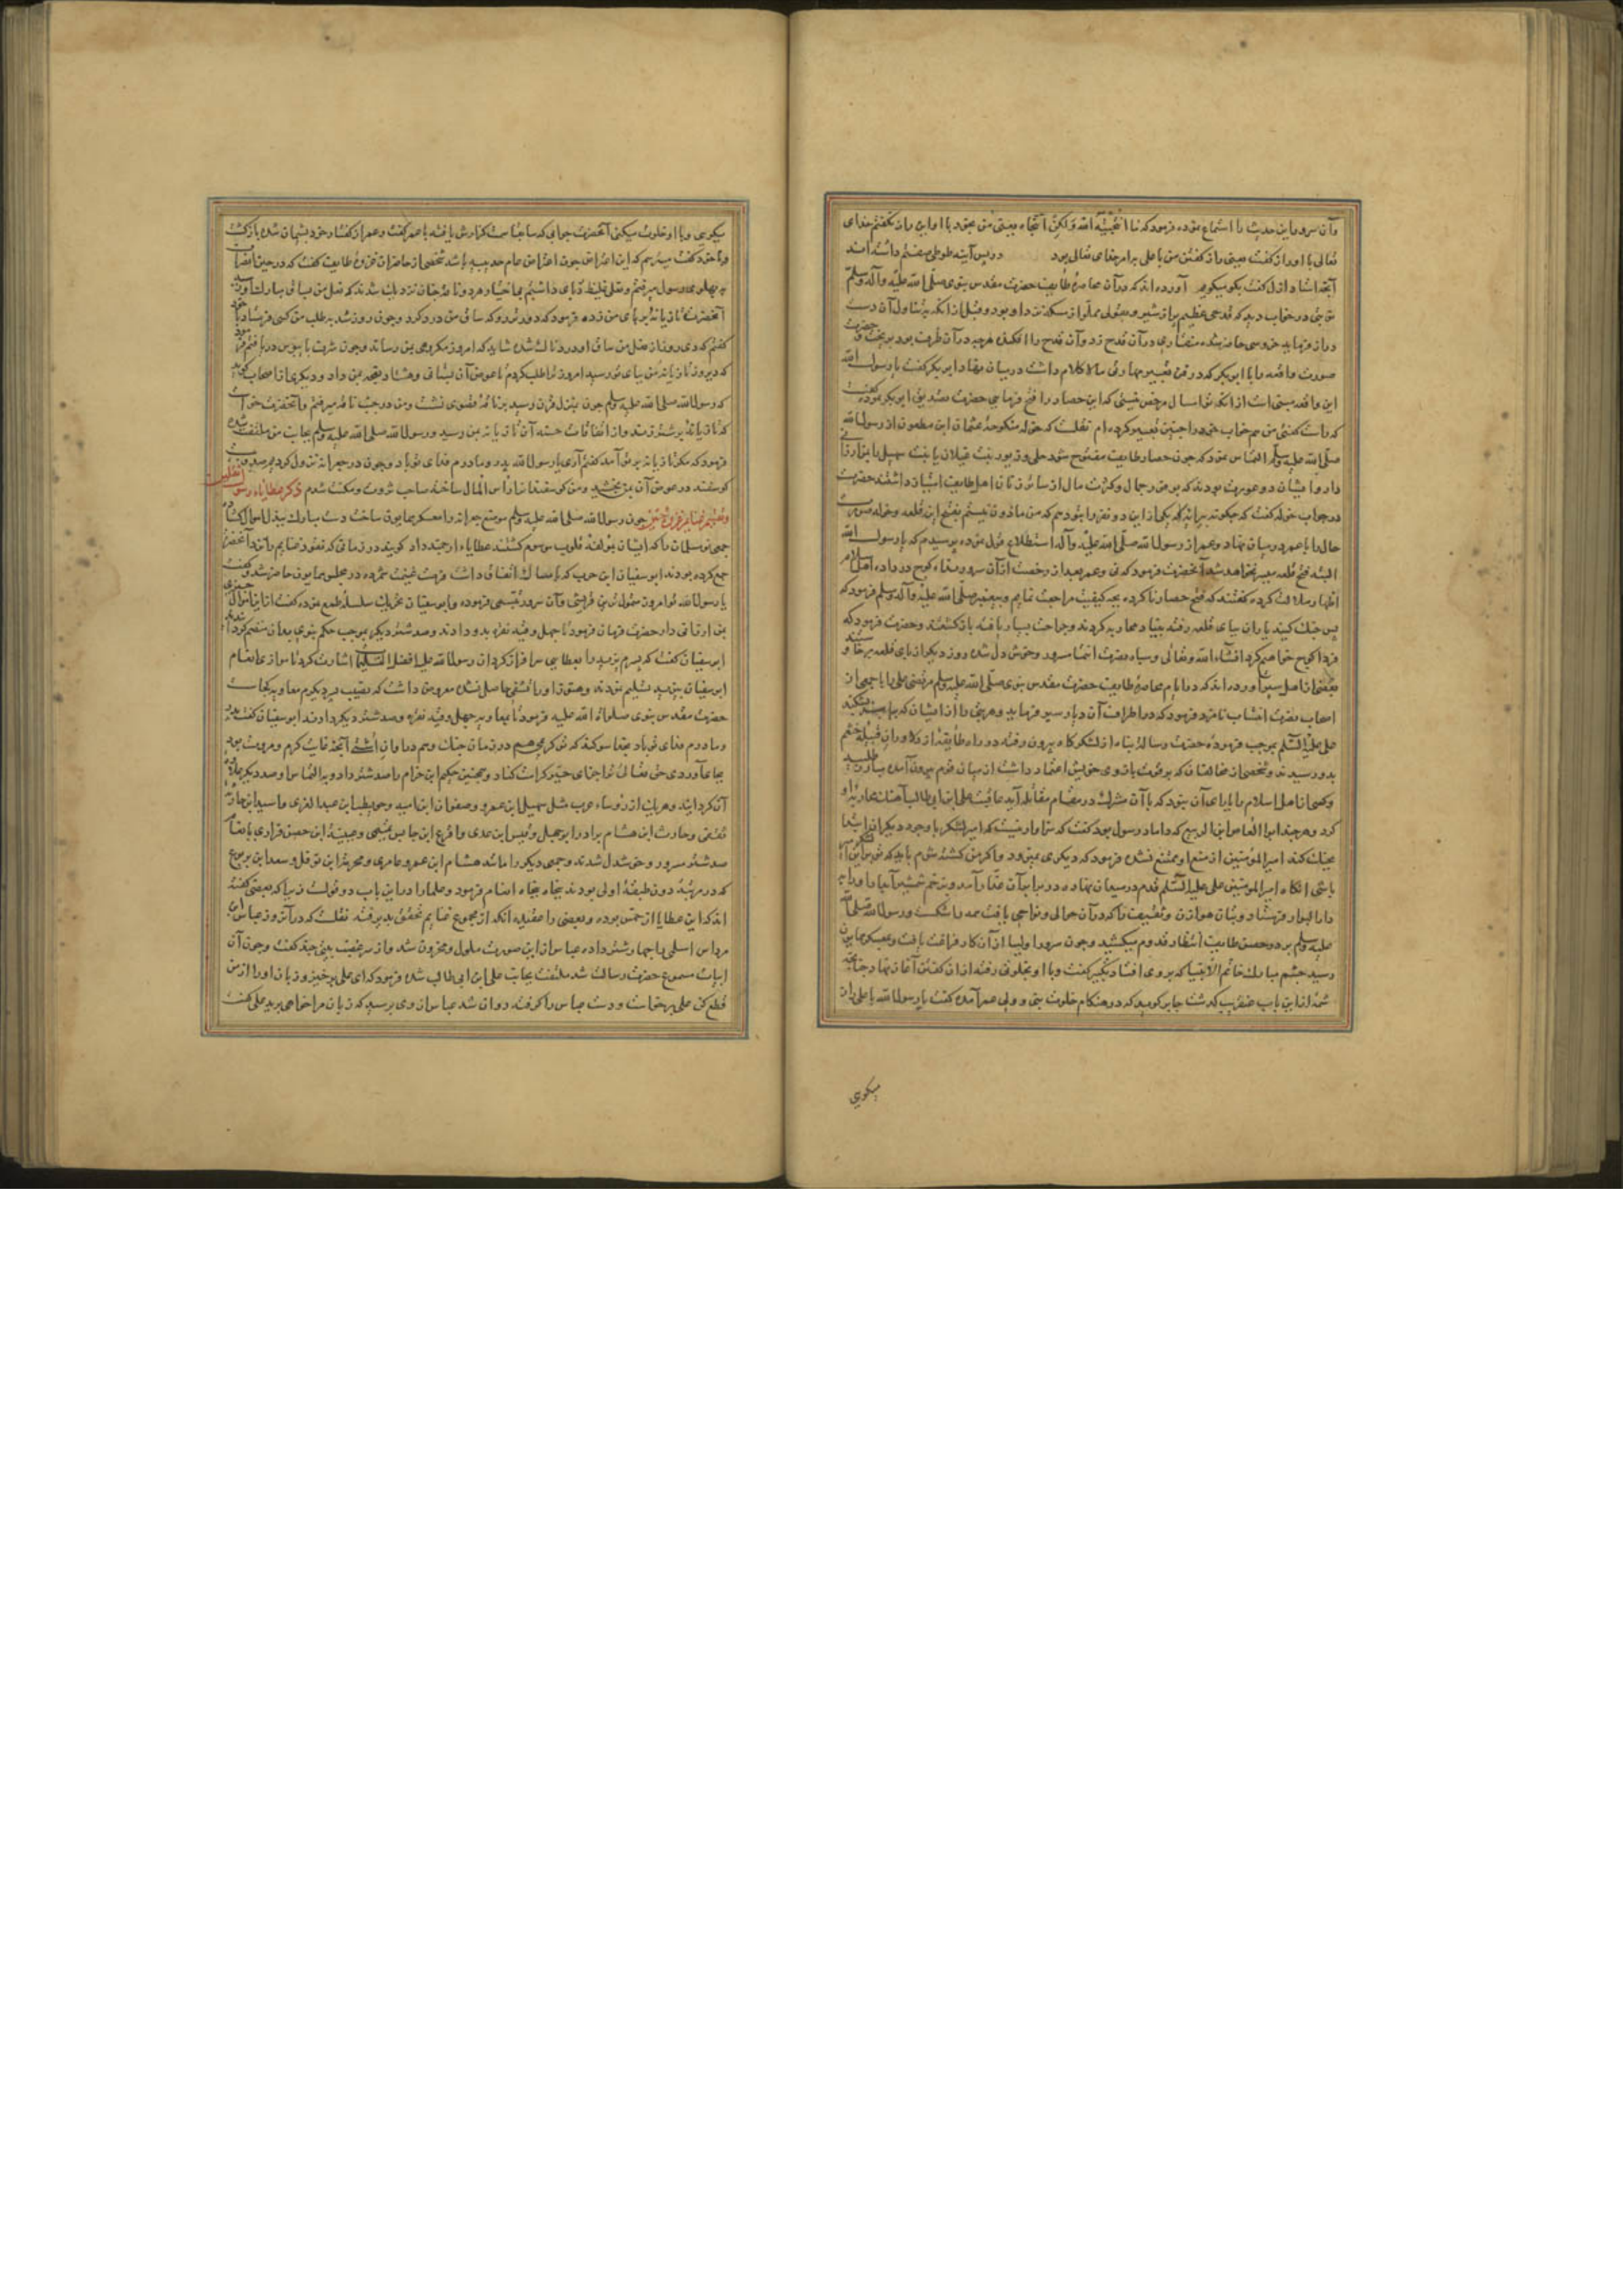 وآن سرور این حدیث را استماع نموده فرمود که ما انتجیته الله ولکن انتجاه یعنی من نمیگویم با او این راز نگفتم خدای
تعالی با او راز گفت یعنی راز گفتن من با علی بامر خدای تعالی بود در پس آینه طوطی صفتم داشته‌اند
آنچه استاد ازل گفت بگو میگویم آورده اند که در آن محاصره طایف حضرت مقدس نبوی صلی الله علیه وآله وسلم
در خواب دید که قدحی عظیم پر از شیر
دراز فرماید خروسی حاضر شده منقار در آن قدح زد و آن قدح را افکند هرچه در آن ظرف بود بریخت
صورت واقعه را با ابوبکر که در فن تعبیر مهارتی داشت در میان نهاد ابوبکر گفت یا رسول الله
این واقعه مبنی است از آنکه تو امسال فتح
که راست گفتی من هم خواب خود را چنین تعبیر کرده ام نقلست که خوله منکوحه عثمان ابن مظعون از رسول الله
صلی الله علیه وسلم التماس نمود که چون حصار طایف مفتوح شود حلی و زیور بنت غیلان یا بنت
حضرت
در جواب خوله گفت که چگونه
حال را با عمر در میان نهاد و عمر از رسول الله صلی الله علیه وآله استطلاع قول نموده پرسیدم که یا رسول الله
البته فتح قلعه میسر نخواهد شد آنحضرت فرمود که نی و عمر بعد از رخصت از آن سرور نداء کوچ در داده اهل اسلام
اظهار ملالت کرده گفتند که فتح حصار ناکرده بچه کیفیت مراجعت نمایم و پیغمبر صلی الله علیه وآله وسلم فرمود که
پس جنک کنید یاران بپای قلعه رفته بنیاد محاربه کردند و جراحت بسیار یافته بازگشتند و حضرت فرمود که
فردا کوچ خواهیم کرد انشاء الله تعالی و سپاه نصرت انتما مسرور و خوش دل شده روز دیگر از پای قلعه برخاستند و
بعضی از اهل سیر آورده اند که در ایام محاصره طایف حضرت مقدس نبوی صلی الله علیه وسلم مرتضی علی را با جمعی از
اصحاب نصرت انتساب نامزد فرمود که در اطراف آن دیار سیر فرماید و هر بتی را
علی علیه السلم بموجب فرموده حضرت رسالت پناه از لشکرگاه بیرون رفته در راه طایفه از دلاوران قبیله خثعم
بدو رسیدند و شخصی از مخالفان که بر قوت بازوی خویش اعتماد داشت از میان قوم بیرون آمده مبارز طلبید
وکسی از اهل اسلام را یارای آن نبود که با آن مشرک در مقام مقابله آید عاقبت علی ابن ابی طالب آهنک محاربه او
کرد و هرچند ابو العاص ابن الربیع که داماد رسول بود گفت که سزاوار نیست که امیر لشکر با وجود دیگران
بجنک کند امیر المؤمنین از منع او ممتنع نشده فرمود که دیگری نمیرود و اگر من کشته شوم باید که تو بر این لشکر
باشی آنکاه امیر المؤمنین علی علیه السلم قدم در میدان نهاده و بزخم شمشیر
دار البوار فرستاد و بتان هوازن و ثقیف را که در آن حوالی و نواحی یافت همه را شکست و رسول الله صلی الله
علیه وسلم بر در حصن طایف انتظار قدوم میکشید و چون سرور اولیا از آن کار فراغت یافت و بعسکر همایون
رسید چشم مبارک خاتم الانبیا که بروی افتاد تکبیر گفت و با او بخلوتی رفته از آن کفتن آغاز نهاد چنانچه
شمه از این باب عنقریب گذشت جابر گوید که در هنگام خلوت نبی و ولی عمر آمده گفت یا رسول الله با علی راز
میگویی
میگویی و با او خلوت میکنی آنحضرت جوابی که سابقا سمت گزارش یافته با عمر گفت و عمر از گفتار خود پشیمان شده بازگشت
شخصی از حاضران غزوه طایف گفت که
در پهلوی رسول میرفتم و نعلی غلیظ در پای داشتم
آنحضرت تازیانه بر پای من زده فرمود که دور شو که ساق من درد کرد و چون روز شد بطلب من کسی فرستاد
گفتم که دی روز از نعل من ساق او دردناک شده شاید که امروز مکروهی بمن رساند و چون شرف پابوس دریافتم فرمود
که دیروز تازیانه من بپای تو رسید امروز ترا طلب کردم تا عوض آن بستانی و هشتاد نعجه بمن داد و دیگری از اصحاب گوید
که رسول الله صلی الله علیه وسلم چون بمنزل قرن رسید بر ناقه قصوی نشست و من در جنب ناقه میرفتم و آنحضرت خواست
که تازیانه بر شتر زند و از اتفاقات حسنه آن تازیانه بمن رسید و رسول الله صلی الله علیه وسلم بجانب من ملتفت شده
فرمود که مکر تازیانه بر تو آمد گفتم آری یا رسول الله پدر و مادرم فدای تو باد و چون در جعرانه نزول کرد
گوسفند در عوض آن بمن بخشید و من گوسفندانرا رأس المال ساخته صاحب ثروت و مکنت شدم ذکر عطایاء رسول الثقلین
وتقسیم غنایم غزوه حنین چون رسول الله صلی الله علیه وسلم موضع جعرانه را معسکر همایون ساخت دست مبارک ببذل اموال گشاده
جمعی نو مسلمان را که ایشان بمؤلفه قلوب موسوم گشتند عطایاء ارجمند داد گویند در زمانی که نقود غنایم را نزد آنحضرت
جمع کرده بودند ابو سفیان ابن حرب که بامساک اتصاف داشت فرصت غنیمت شمرده در مجلس همایون حاضر شد و گفت
یا رسول الله تو امروز متمول ترین قریشی و آن سرور تبسمی فرموده و ابو سفیان بتحریک سلسله طمع نموده گفت از این اموال چیزی
بمن ارزانی دار حضرت فرمان فرمود تا چهل وقیه نقره بدو دادند و صد شتر دیگر بموجب حکم نبوی بدان منضم کردانیده شد
ابو سفیان گفت که پسرم یزید را بعطایی سرافراز کردان رسول الله علیه افضل السلم اشارت کرد تا موازی انعام
ابو سفیان بیزید تسلیم نمودند و هنوز او را تشفی حاصل نشده معروض داشت که نصیب پسر دیگرم معاویه کجاست
حضرت مقدس نبوی صلوات الله علیه فرمود تا بمعاویه چهل وقیه نقره و صد شتر دیگر دادند ابو سفیان گفت پدر
ومادرم فدای تو باد بخدا سوگند که تو کریمی هم در زمان جنک وهم در اوان آشتی آنچه غایت کرم و مروت بود
بجای آوردی حق تعالی ترا جزای خیر کرامت کناد و همچنین حکیم ابن حزام را صد شتر داد و بر التماس او صد دیگر علاوه
آن کردانید و هر یک از رؤساء عرب مثل سهیل ابن عمرو و صفوان ابن امیه و حویطب ابن عبد العزی و اسید ابن جاریه
ثقفی و حارث ابن هشام برادر ابو جهل و قیس ابن عدی و اقرع ابن حابس تمیمی و عیینه ابن حصن فزاری بانعام
صد شتر مسرور و خوشدل شدند و جمعی دیگر را مانند هشام ابن عمرو عامری و مخرمه ابن نوفل و سعد ابن یربوع
که در مرتبه دون طبقه اولی بودند پنجاه پنجاه انعام فرمود و علما را در این باب دو قولست زیرا که بعضی گفته
اند که این عطایا از خمس بوده و بعضی را عقیده آنکه از مجموع غنایم تحقق پذیرفته نقلست که در آنروز عباس ابن
مرداس اسلمی را چهار شتر داده عباس از این صورت ملول و محزون شد و از سر غضب بیتی چند گفت و چون آن
ابیات مسموع حضرت رسالت شد ملتفت بجانب علی ابن ابی طالب شده فرمود که ای علی برخیز و زبان او را از من
قطع کن علی برخاست و دست عباس را گرفته روان شد عباس از وی پرسید که زبان مرا خواهی برید علی گفت